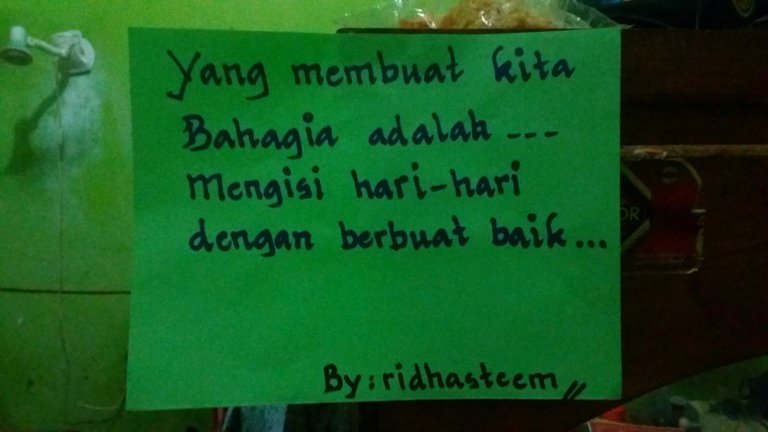 Yang membuat kita
Bahagia adalah ---
Mengisi hari-hari
dengan berbuat baik...
By: ridhasteem //
OR